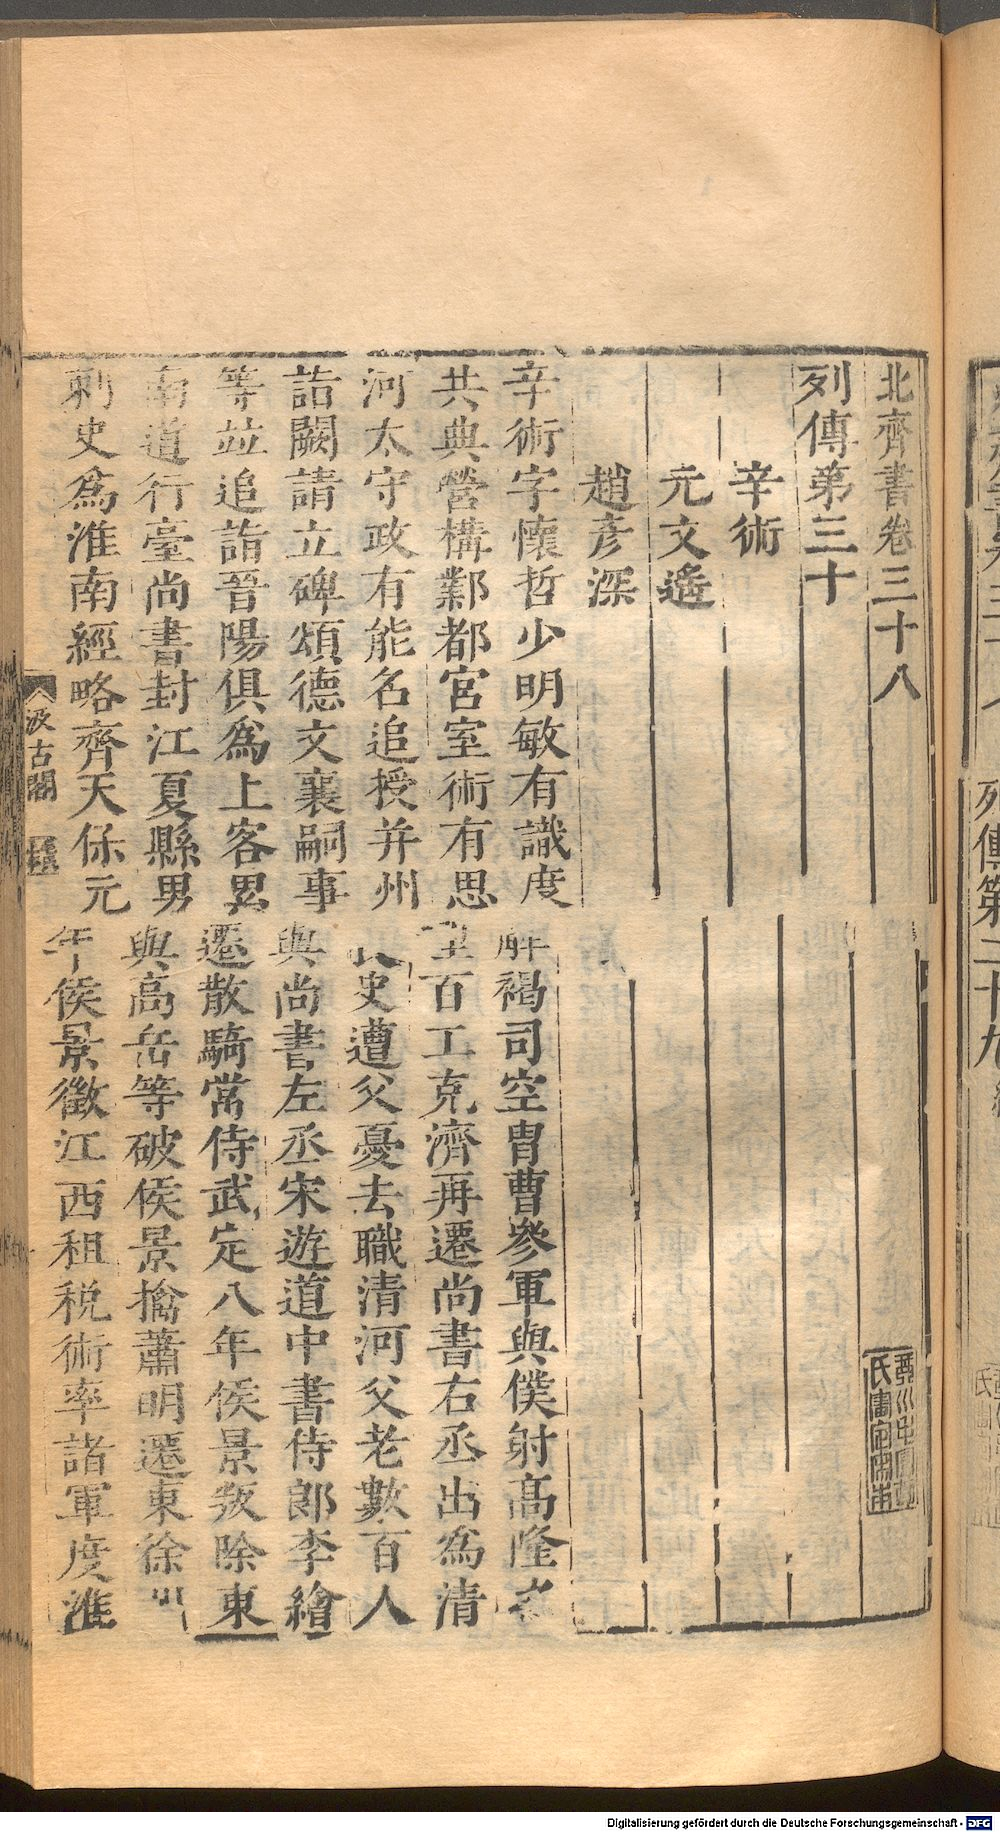 北齊書卷三十八
列傳第三十
辛術
元文遙
趙彦深
辛術字懷哲少明敏有識度解褐司空冑曹參軍與僕射高隆之
共典營構鄴都宮室術有思理百工克濟再遷尚書右丞出為清
河太守政有能名追授并州長史遭父憂去職清河父老數百人
詣闕請立碑頌德文襄嗣事與尚書左丞宋遊道中書侍郎李繪
等並追詣晉陽俱爲上客累遷散騎常侍武定八年侯景叛除東
南道行臺尚書封江夏縣男與高岳等破侯景擒蕭明遷東徐州
刺史爲淮南經略齊天保元年侯景徵江西租税術率諸軍度淮
汲古閣
列傳第二十九
Digitalisierung gefördert durch die Deutsche Forschungsgemeinschaft - DFG